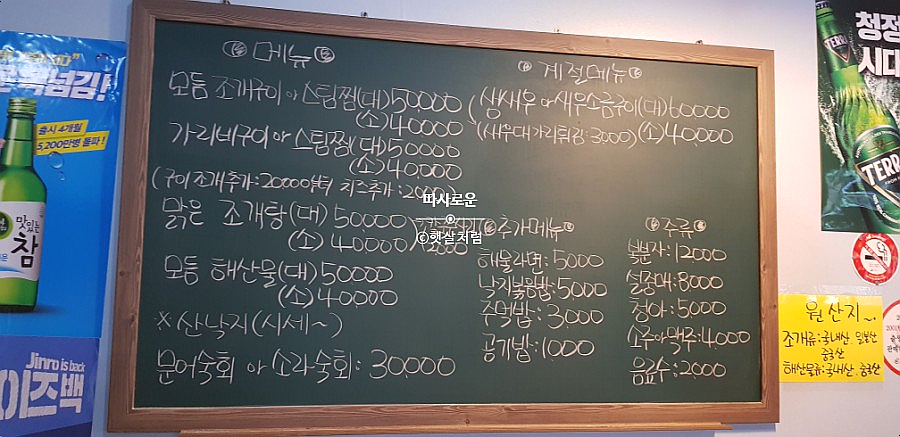 메뉴
모듬 조개구이 or 스팀찜(대) 50000
(소) 40000
가리비구이 or 스팀찜(대) 50000
(소) 40000
(구이 조개추가:20000부터 치즈추가:2000)
맑은 조개탕(대) 50000
(소) 40000
모듬 해산물(대) 50000
(소) 40000
※산낙지(시세~)
문어숙회 or 소라숙회: 30000
계절메뉴
생새우 or 새우소금구이(대) 60000
(새우대가리튀김:3000) (소) 40,000
추가메뉴
해물라면: 5000
낙지볶음밥: 5000
주먹밥: 3000
공기밥: 1000
주류
복분자: 12000
설중매: 8000
청하: 5000
소주 or 맥주: 4000
음료수: 2000
따사로운
©햇살처럼
출시 4개월
5,200만병 돌파!
맛있는
참
Jinro is back
이즈백
청정
시대
TERRA
TERR
원산지~
조개류:국내산 일본산
중국산
해산물류:국내산.중국산